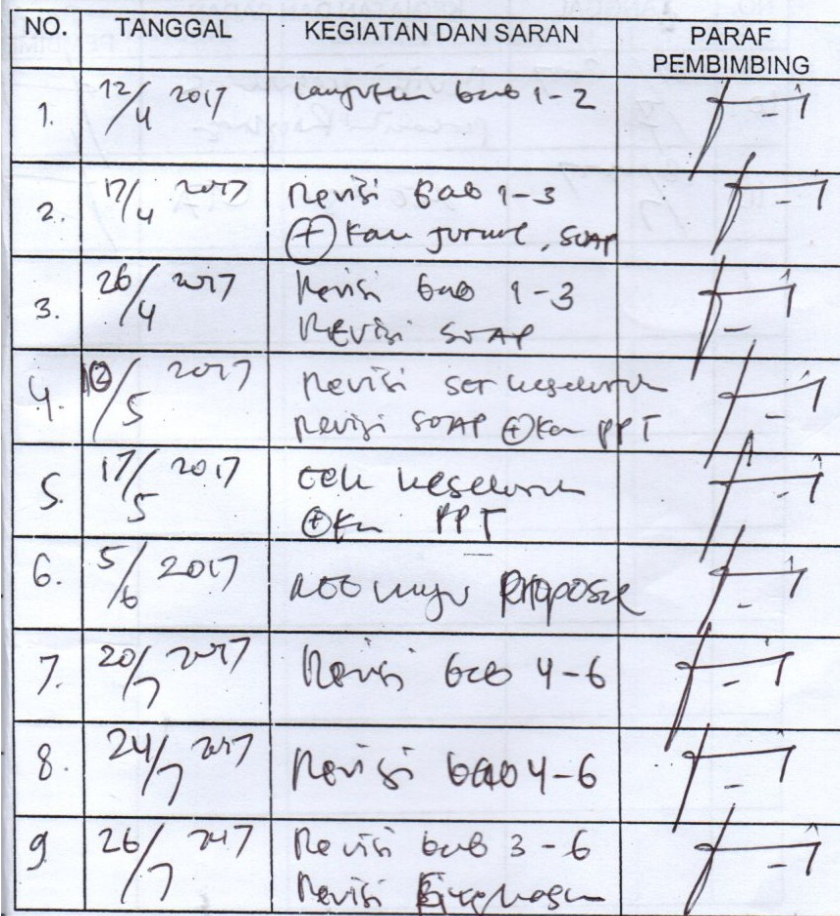 NO. TANGGAL KEGIATAN DAN SARAN PARAF PEMBIMBING
1. 12/4 2017 Lanjutkan bab 1-2
2. 17/4 2017 Revisi bab 1-3
⊕ kan jurnal, SOAP
3. 26/4 2017 Revisi bab 1-3
Revisi SOAP
4. 12/5 2017 Revisi keseluruh
Revisi SOAP ⊕kan PPT
5. 17/5 2017 Cek keseluruh
⊕kan PPT
6. 5/6 2017 ACC maju Proposal
7. 20/7 2017 Revisi bab 4-6
8. 24/7 2017 Revisi bab 4-6
9. 26/7 2017 Revisi bab 3-6
Revisi